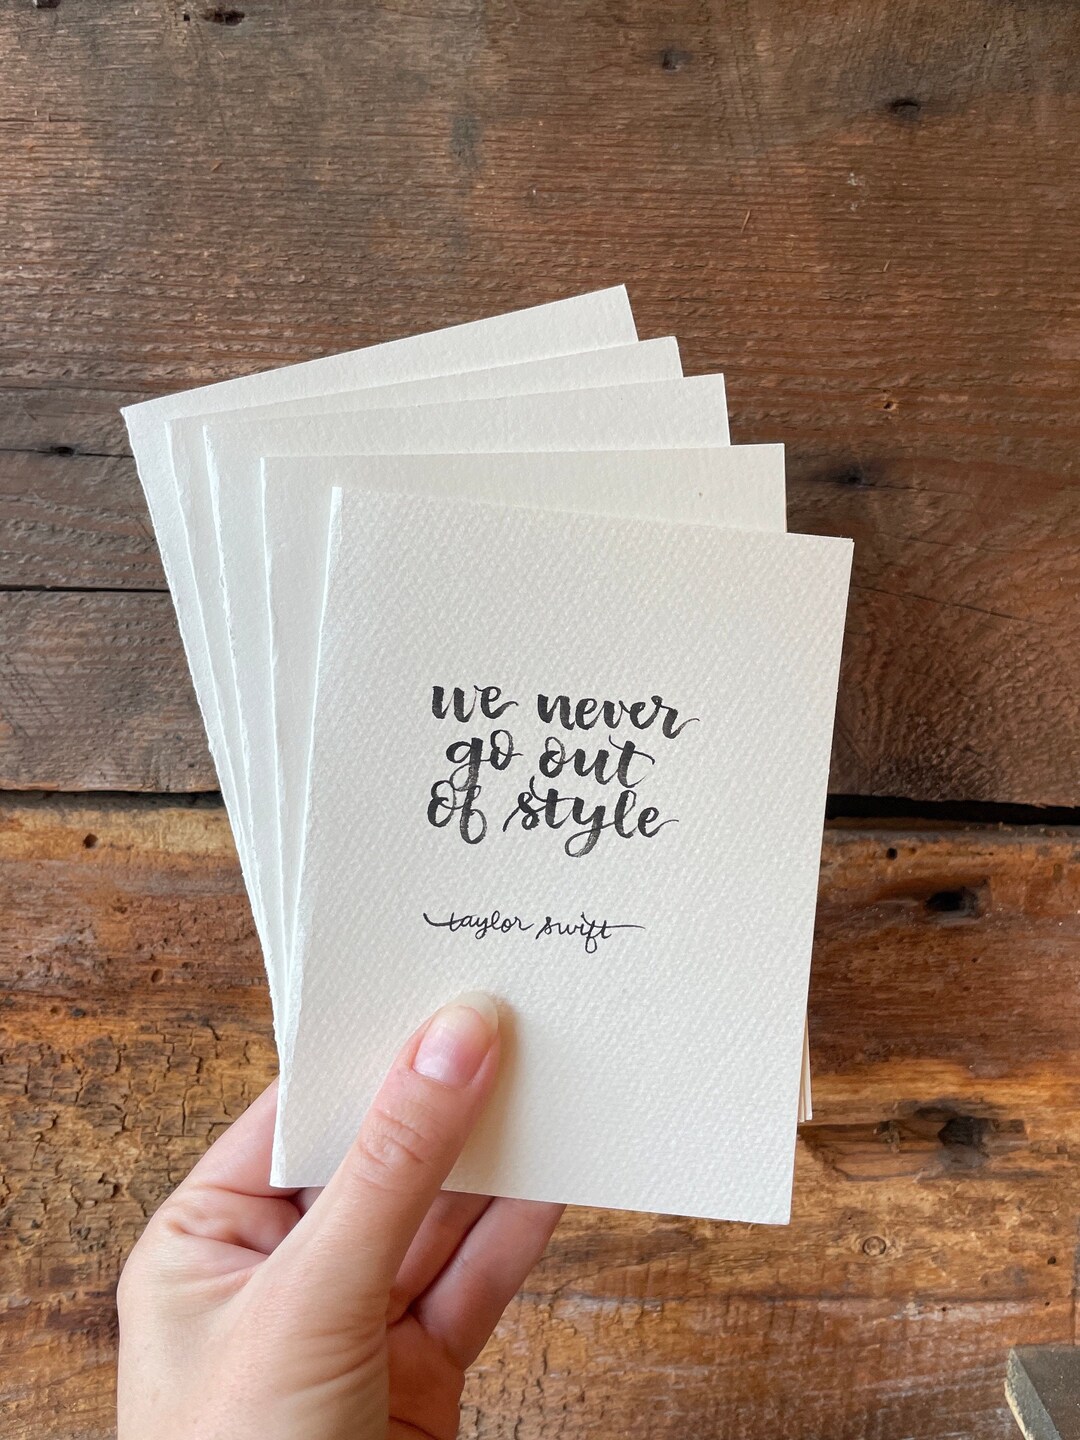 we never
go out
of style
taylor swift